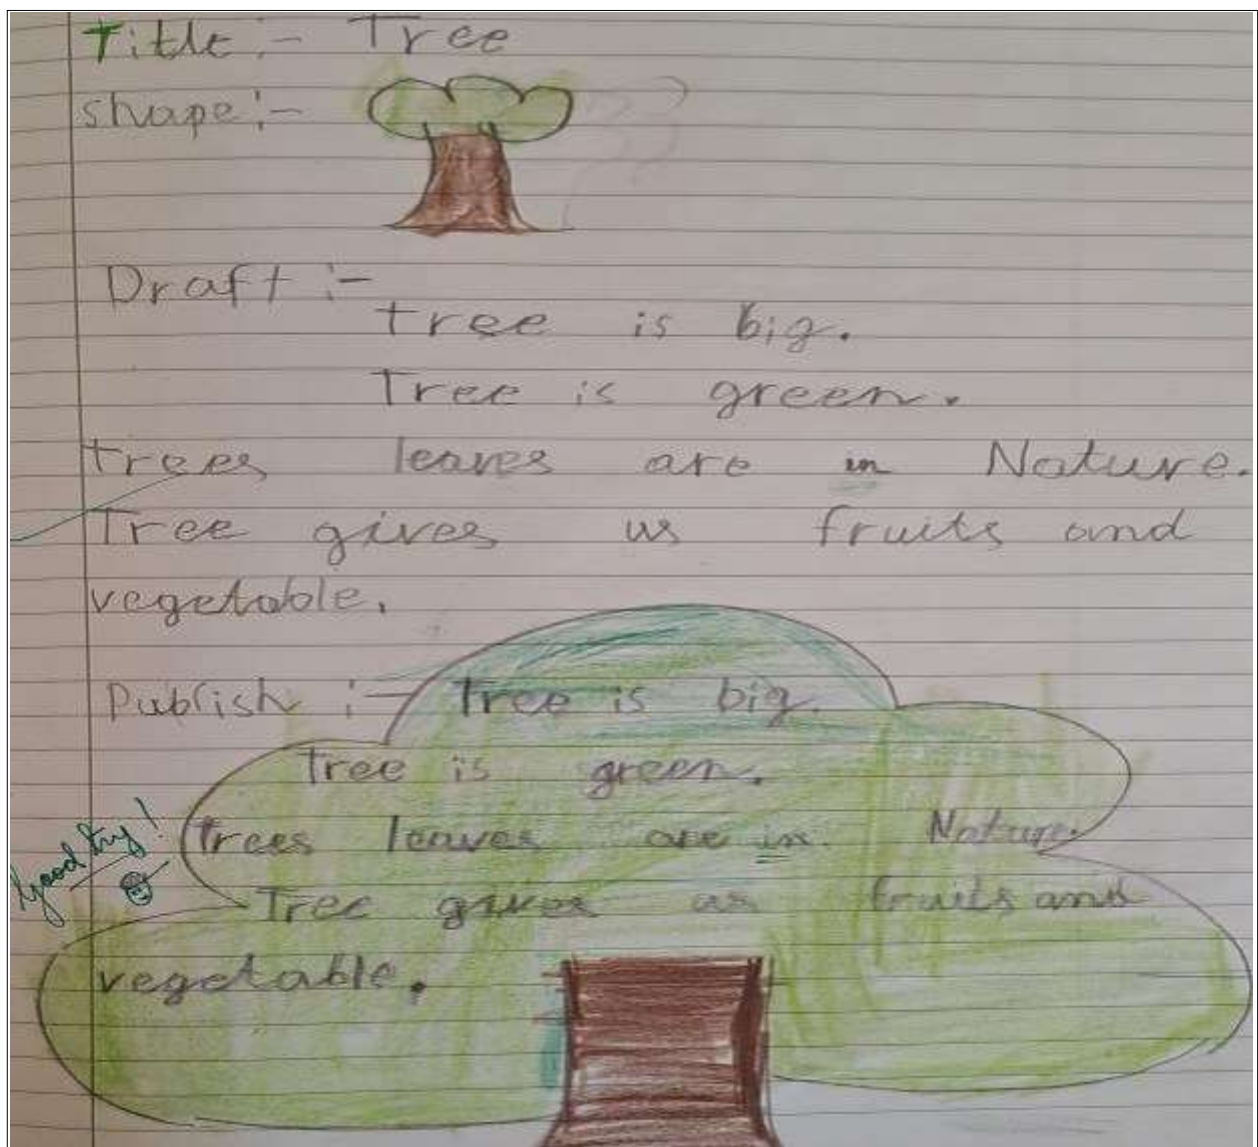 Title :- Tree
Shape :-
Draft :-
Tree is big.
Tree is green.
Trees leaves are in Nature.
Tree gives us fruits and
vegetable.
Publish :- Tree is big.
Tree is green.
Good try!
Trees leaves are in Nature.
Tree gives us fruits and
vegetable.